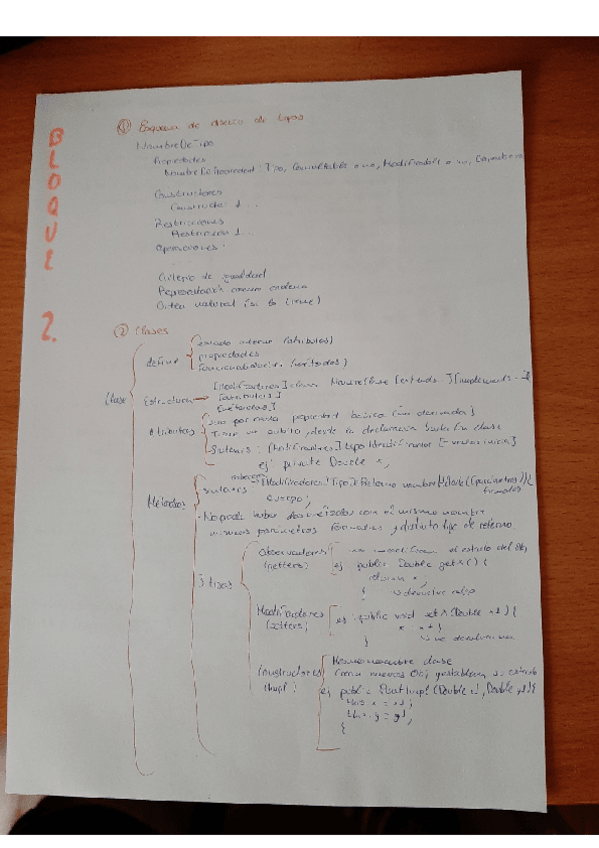 BLOQUE 2.
① Esquema de diseño de tipos
NombreDeTipo
Propiedades
NombreDePropiedad: Tipo, Consultable o no, Modificable o no,
Constructores
Constructor 1...
Restricciones
Restricción 1...
Operaciones:
Criterio de igualdad
Representación como cadena
Orden natural (si lo tiene)
② Clases
Clase
definir
estado interno (atributos)
propiedades
funcionalidades (métodos)
Estructura
[Modificadores] class NombreClase [extends...][implements...]{
[atributos]
[métodos]
Atributos
uno por cada propiedad básica (no derivada)
Tienen un ámbito, desde la declaración hasta fin clase
Sintaxis: [Modificadores] tipo Identificador [= valor inicial]
ej: private Double x;
Métodos
sintaxis
cabecera
[Modificadores] TipoDeRetorno nombreMétodo ([parámetros formales]){
cuerpo;
- No puede haber dos métodos con el mismo nombre
mismos parámetros formales y distinto tipo de retorno
3 tipos
Observadores (getters)
no modifican el estado del Obj
ej public Double getX() {
return x;
}
devuelve
Modificadores (setters)
ej: public void setX(Double x1) {
x = x1;
}
Constructores
Mismo nombre clase
Crear nuevos Obj y establecen su estado
ej public PointImpl (Double x1, Double y1){
this.x = x1;
this.y = y1;
{